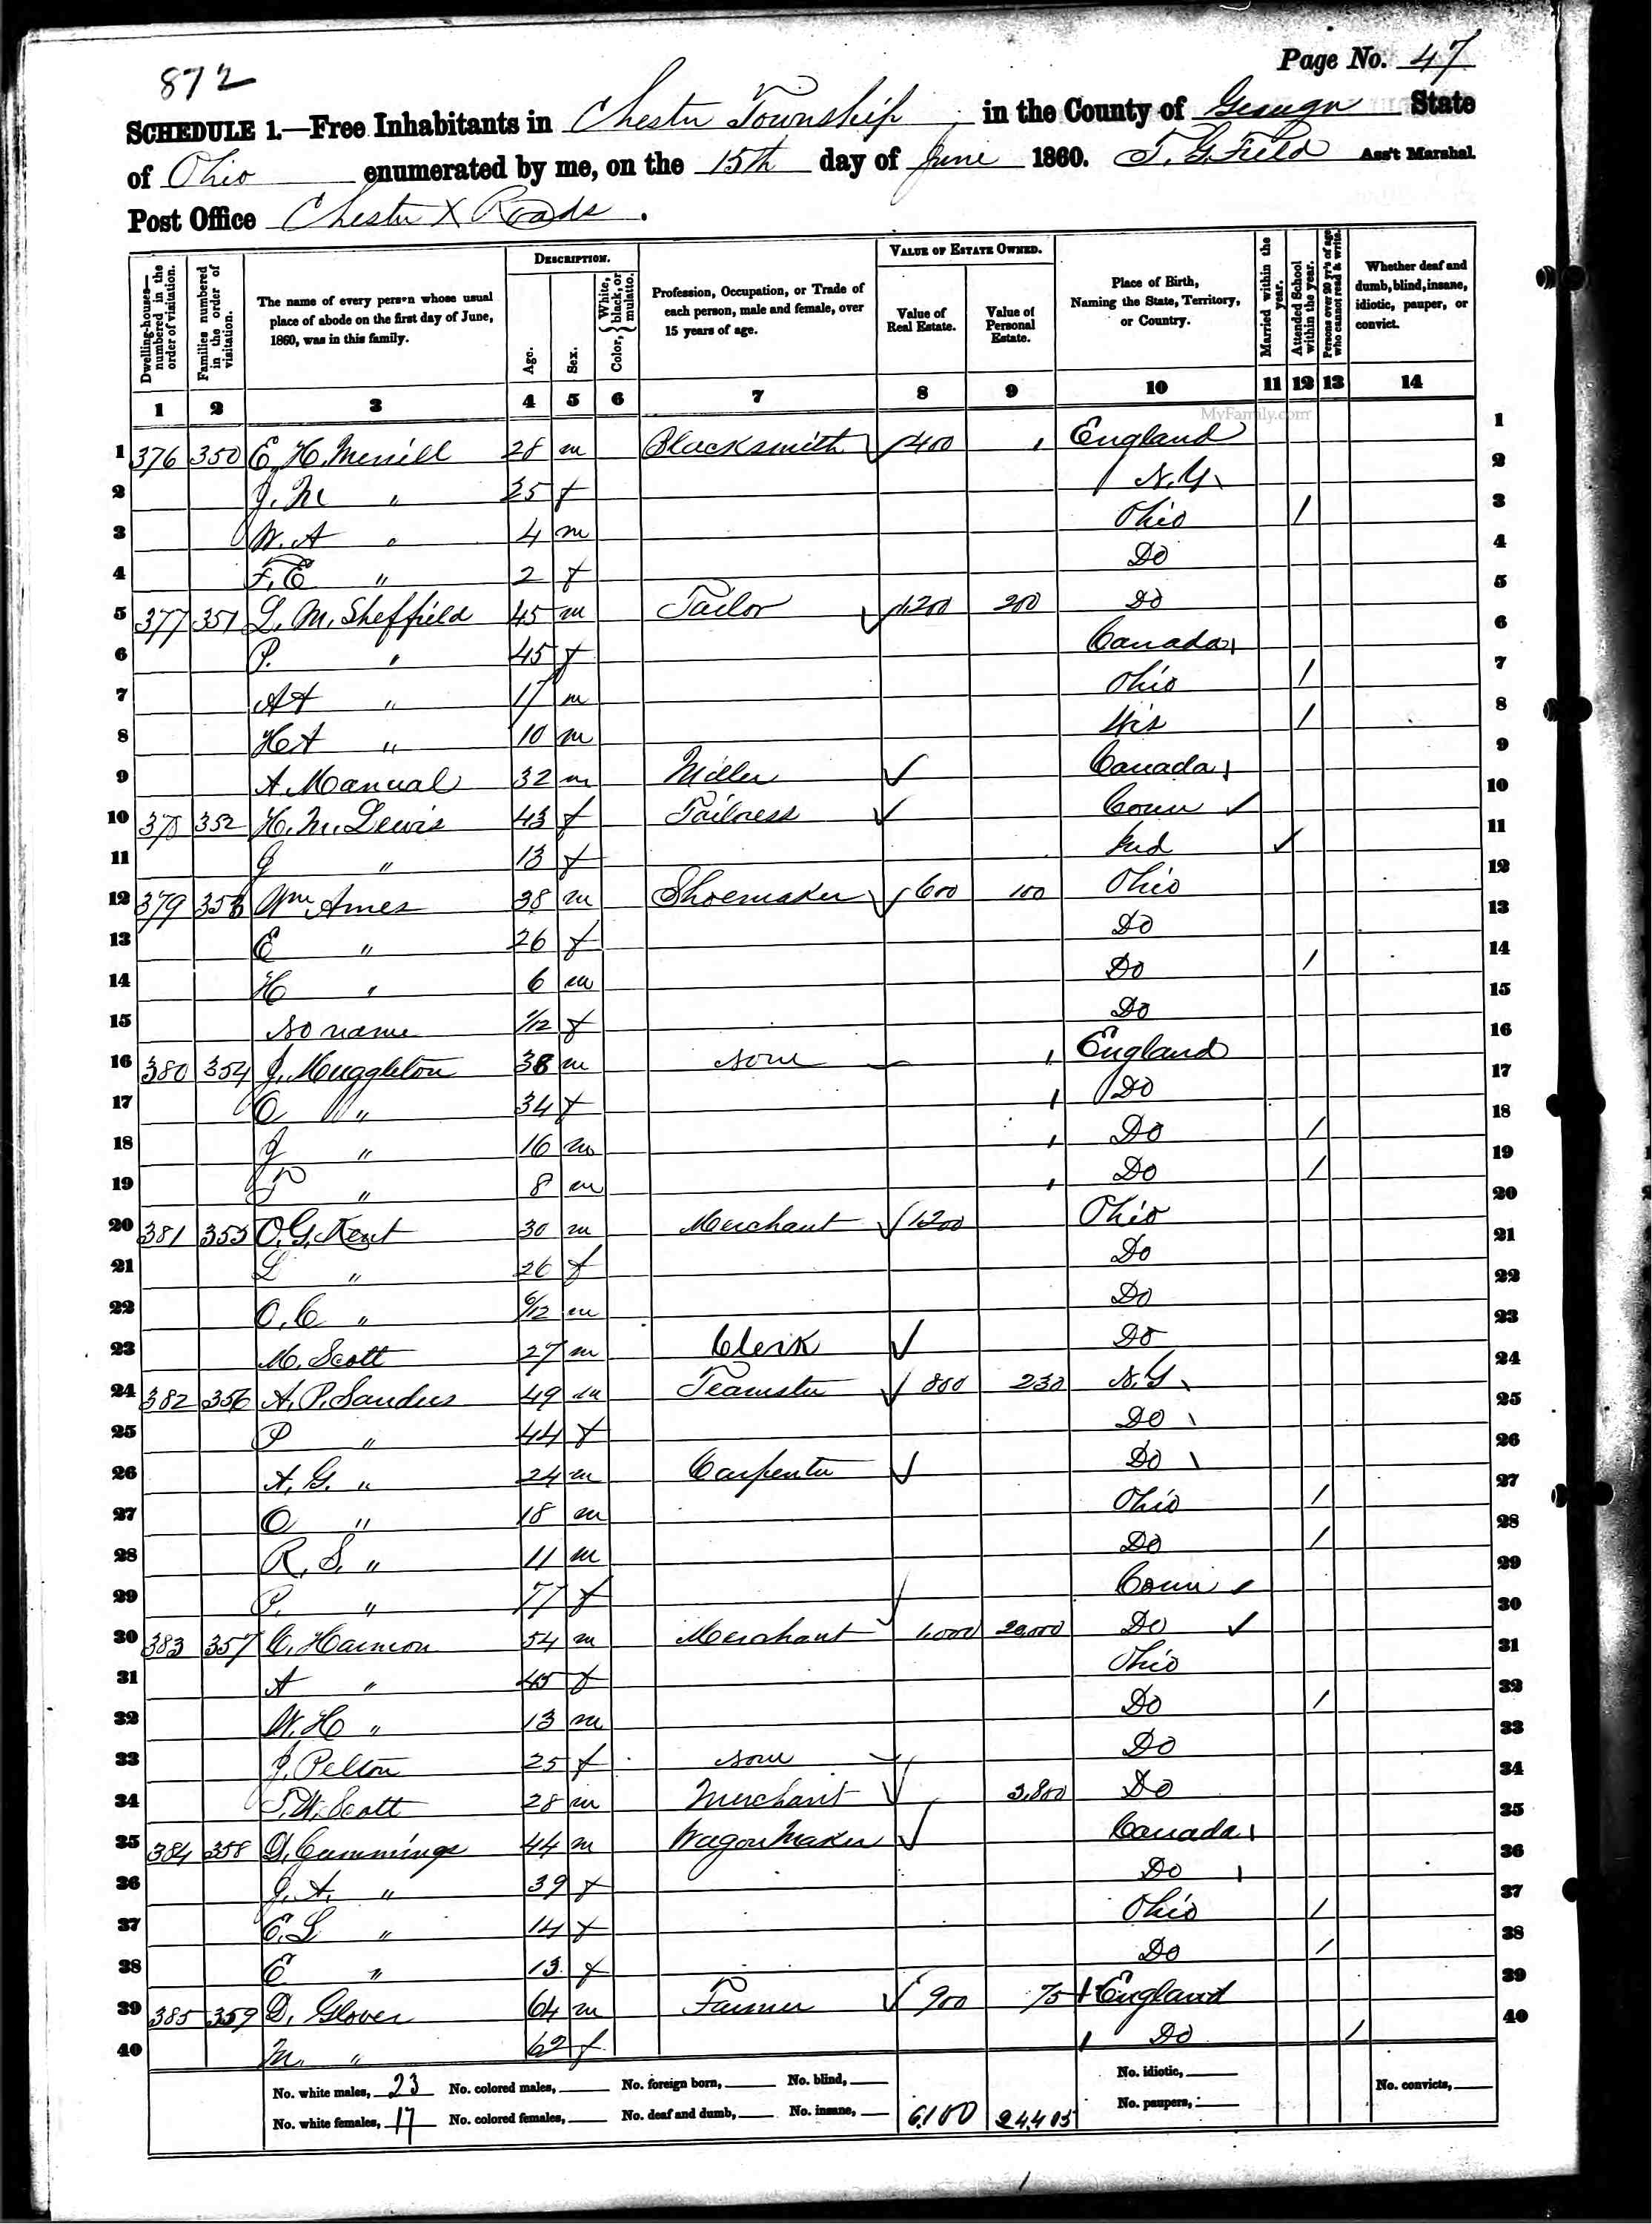 872
Page No. 47
SCHEDULE 1.—Free Inhabitants in Chester Township in the County of Geauga State
of Ohio enumerated by me, on the 15th day of June 1860. T. G. Field Ass't Marshal.
Post Office Chester X Roads.
DESCRIPTION.
VALUE OF ESTATE OWNED.
Dwelling-houses—numbered in the order of visitation.
Families numbered in the order of visitation.
The name of every person whose usual place of abode on the first day of June, 1860, was in this family.
Age.
Sex.
Color, { White, black, or mulatto.
Profession, Occupation, or Trade of each person, male and female, over 15 years of age.
Value of Real Estate.
Value of Personal Estate.
Place of Birth, Naming the State, Territory, or Country.
Married within the year.
Attended School within the year.
Persons over 20 yr's of age who cannot read & write.
Whether deaf and dumb, blind, insane, idiotic, pauper, or convict.
1 2 3 4 5 6 7 8 9 10 11 12 13 14
MyFamily.com
1 376 350 E. H. Merrill 28 m Blacksmith √ 400 England 1
2 J. M " 25 f N.Y. 2
3 W. A " 4 m Ohio / 3
4 F. E " 2 f Do 4
5 377 351 L. M. Sheffield 45 m Tailor √ 1,200 200 Do 5
6 P. " 45 f Canada 6
7 A A " 17 m Ohio / 7
8 H A " 10 m Wis / 8
9 A. Manual 32 m Miller √ Canada 9
10 378 352 H. M. Lewis 43 f Tailress √ Conn √ 10
11 J " 13 f Ind √ 11
12 379 353 Wm Ames 38 m Shoemaker √ 600 100 Ohio 12
13 E " 26 f Do 13
14 H " 6 m Do / 14
15 No name 1/12 f Do 15
16 380 354 J. Muggleton 38 m None England 16
17 O " 34 f Do 17
18 J " 16 m Do / 18
19 T " 8 m Do / 19
20 381 355 O. G. Kent 30 m Merchant √ 1200 Ohio 20
21 L " 26 f Do 21
22 O. C " 6/12 m Do 22
23 M. Scott 27 m Clerk √ Do 23
24 382 356 A. P. Sanders 49 m Teamster √ 800 230 N.Y. 24
25 P " 44 f Do 25
26 A. G. " 24 m Carpenter √ Do 26
27 O " 18 m Ohio / 27
28 R. S. " 11 m Do / 28
29 P. " 77 f Conn √ 29
30 383 357 C. Harmon 54 m Merchant √ 1,000 20,000 Do √ 30
31 A " 45 f Ohio 31
32 W. H " 13 m Do / 32
33 J. Pelton 25 f None Do 33
34 T. W. Scott 28 m Merchant √ 3,800 Do 34
35 384 358 D. Cummings 44 m Wagon Maker √ Canada 35
36 J. A. " 39 f Do 36
37 E. L " 14 f Ohio / 37
38 E " 13 f Do / 38
39 385 359 D. Glover 64 m Farmer √ 900 75 England 39
40 M. " 62 f Do / 40
No. white males, 23 No. colored males, No. foreign born, No. blind, No. idiotic, No. convicts,
No. white females, 17 No. colored females, No. deaf and dumb, No. insane, 6,100 24,405 No. paupers,